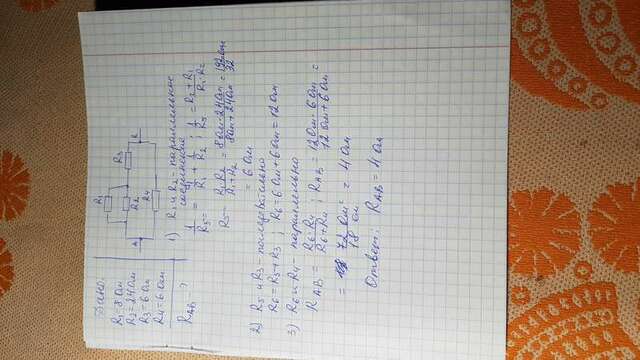 Дано:
R1-8 Ом
R2=24 Ом
R3=6 Ом
R4=6 Ом
RAB ?
R1
R2
R3
R4
A
B
1) R1 и R2 - параллельное
соединение
1/R5 = 1/R1 + 1/R2 ; 1/R5 = R2+R1/R1·R2
R5 - R1·R2/R1+R2 = 8 Ом·24 Ом/8 Ом+24 Ом = 192/32
= 6 Ом
2) R5 и R3 - последовательно
R6=R5+R3 ; R6=6 Ом+6 Ом=12 Ом
3) R6 и R4 - параллельно
RAB = R6·R4/R6+R4 ; RAB = 12 Ом·6 Ом/12 Ом+6 Ом =
= 72 Ом²/18 Ом = 4 Ом
Ответ: RAB = 4 Ом